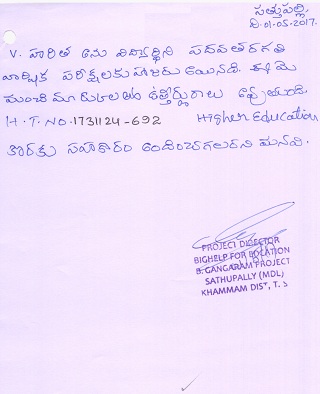 సత్తుపల్లి,
ది.01-05-2017.
V. హారిత అను విద్యార్థిని పదవతరగతి
వార్షిక పరీక్షలకు హాజరు అయినది. ఈ మె
మంచి మార్కులలతో ఉత్తీర్ణురాలు
H.T.NO. 1731124-692 Higher Education
కొరకు సహకారం అందించగలరని మనవి.
PROJECT DIRECTOR
BIGHELP FOR EDUCATION
B.GANGARAM PROJECT
SATHUPALLY (MDL)
KHAMMAM DIST, T.S